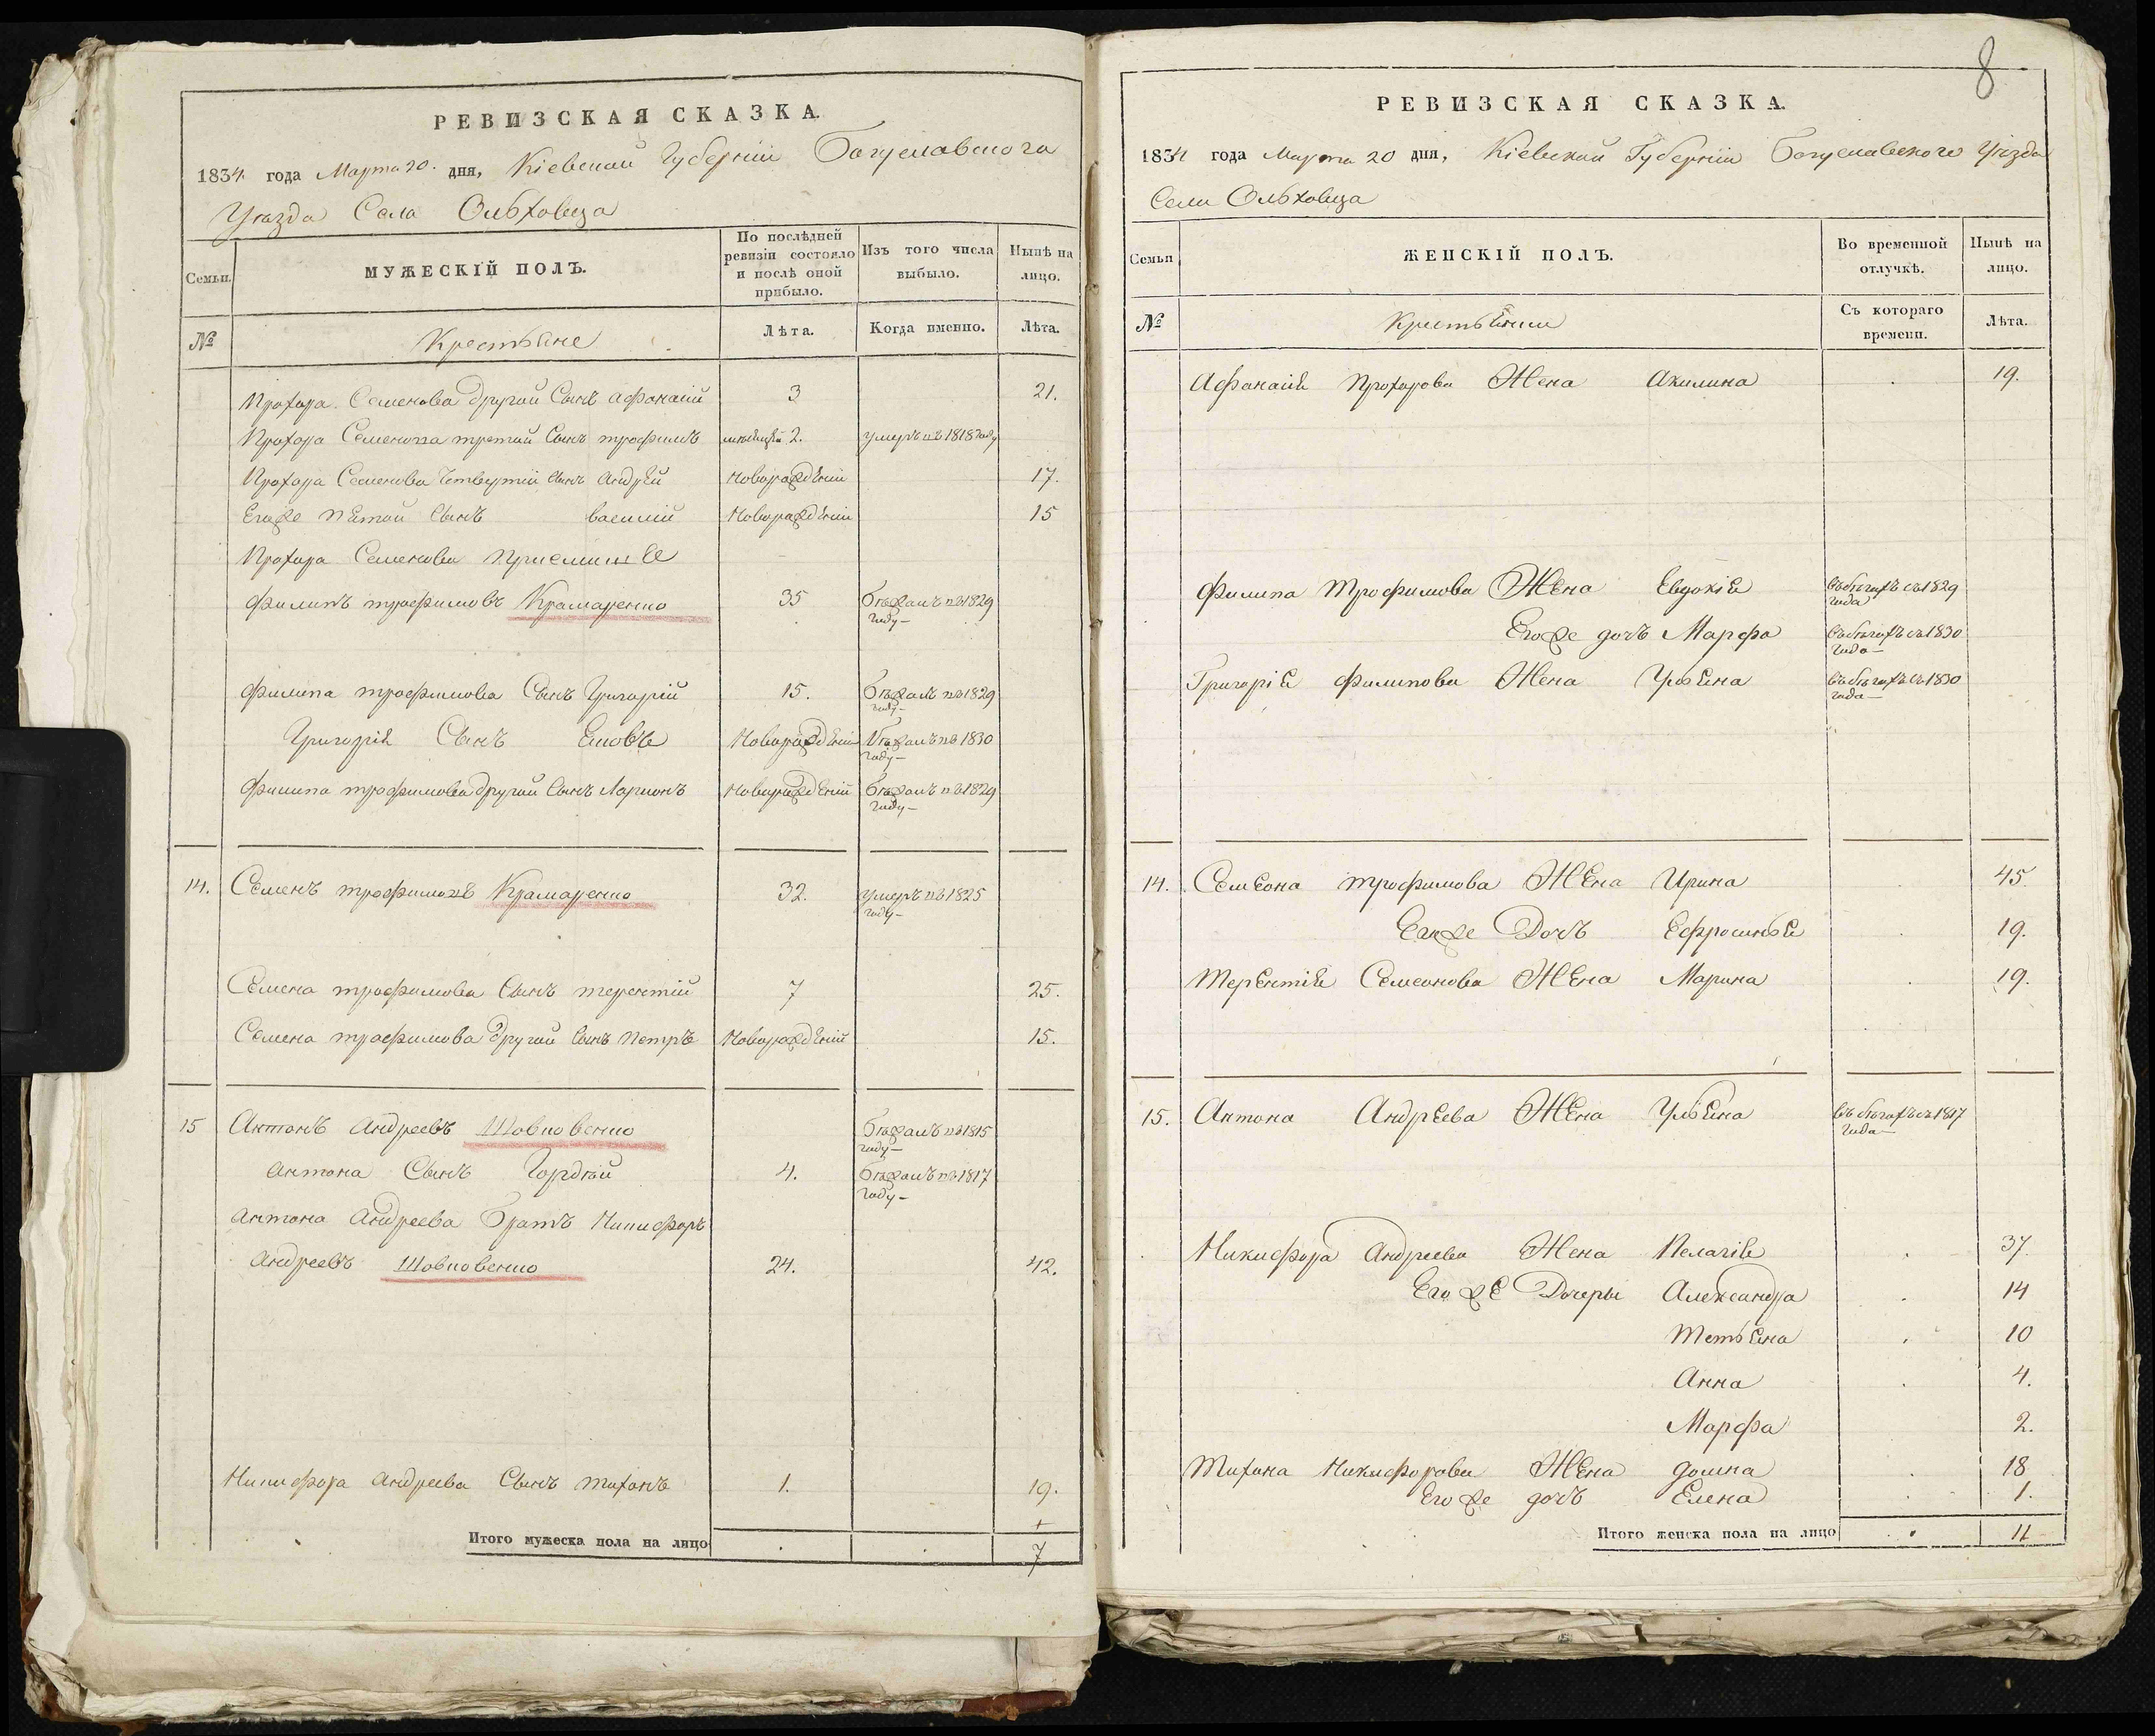 РЕВИЗСКАЯ СКАЗКА.
1834 года Марта 20. дня, Кіевской Губерніи Богуславского
Уезда Села Ольховца
Семьи.
МУЖЕСКІЙ ПОЛЪ.
По послѣдней ревизіи состояло и послѣ оной прибыло.
Изъ того числа выбыло.
Нынѣ на лицо.
№
Крестьяне
Лѣта.
Когда именно.
Лѣта.
Прохора Семенова другой Сынъ Афанасій 3 21.
Прохора Семенова третий Сынъ трофимъ 2. умеръ въ 1818 году
Прохора Семенова Четвертій Сынъ Андрей новорождений 17.
Егоже пятой Сынъ василій Новорождений 15
Прохора Семенова
Филипъ трофимовъ Крамаренко 35 бѣжалъ въ 1829 году
Филипа трофимова Сынъ Григорій 15. бѣжалъ въ 1829 году
Григорія Сынъ Яковъ Новорождений бѣжалъ въ 1830 году
Филипа трофимова другой Сынъ Ларионъ Новорождений бѣжалъ въ 1829 году
14. Семенъ трофимовъ Крамаренко 32. умеръ въ 1825 году
Семена трофимова Сынъ терентій 7 25.
Семена трофимова другой Сынъ Петръ Новорождений 15.
15 Антонъ Андреевъ Шовковенко бѣжалъ въ 1815 году
Антона Сынъ Гордѣй 4. бѣжалъ въ 1817 году
Антона Андреева Братъ Никифоръ
Андреевъ Шовковенко 24. 42.
Никифора Андреева Сынъ тихонъ 1. 19.
Итого мужеска пола на лицо . . 7
8
РЕВИЗСКАЯ СКАЗКА.
1834 года Марта 20 дня, Кіевской Губерніи Богуславского Уезда
Села Ольховца
Семьи
ЖЕНСКІЙ ПОЛЪ.
Во временной отлучкѣ.
Нынѣ на лицо.
№
Съ котораго времени.
Лѣта.
Афанасія Прохорова Жена Акилина . 19.
Филипа Трофимова Жена Евдокія въ бѣгахъ съ 1829 года
Егоже дочь Марфа въ бѣгахъ съ 1830 года
Григорія Филипова Жена Ульяна въ бѣгахъ съ 1830 года
14. Семеона трофимова Жена Ирина . 45.
Егоже Дочь Ефросинья . 19.
Терентія Семеонова Жена Марина . 19.
15. Антона Андреева Жена Ульяна въ бѣгахъ съ 1817 года
Никифора Андреева Жена Пелагія . 37.
Егоже Дочеры Александра . 14
Тетьяна . 10
Анна . 4.
Марфа 2.
Тихона Никифорова Жена домна . 18
Егоже дочь Елена . 1.
Итого женска пола на лицо . 11